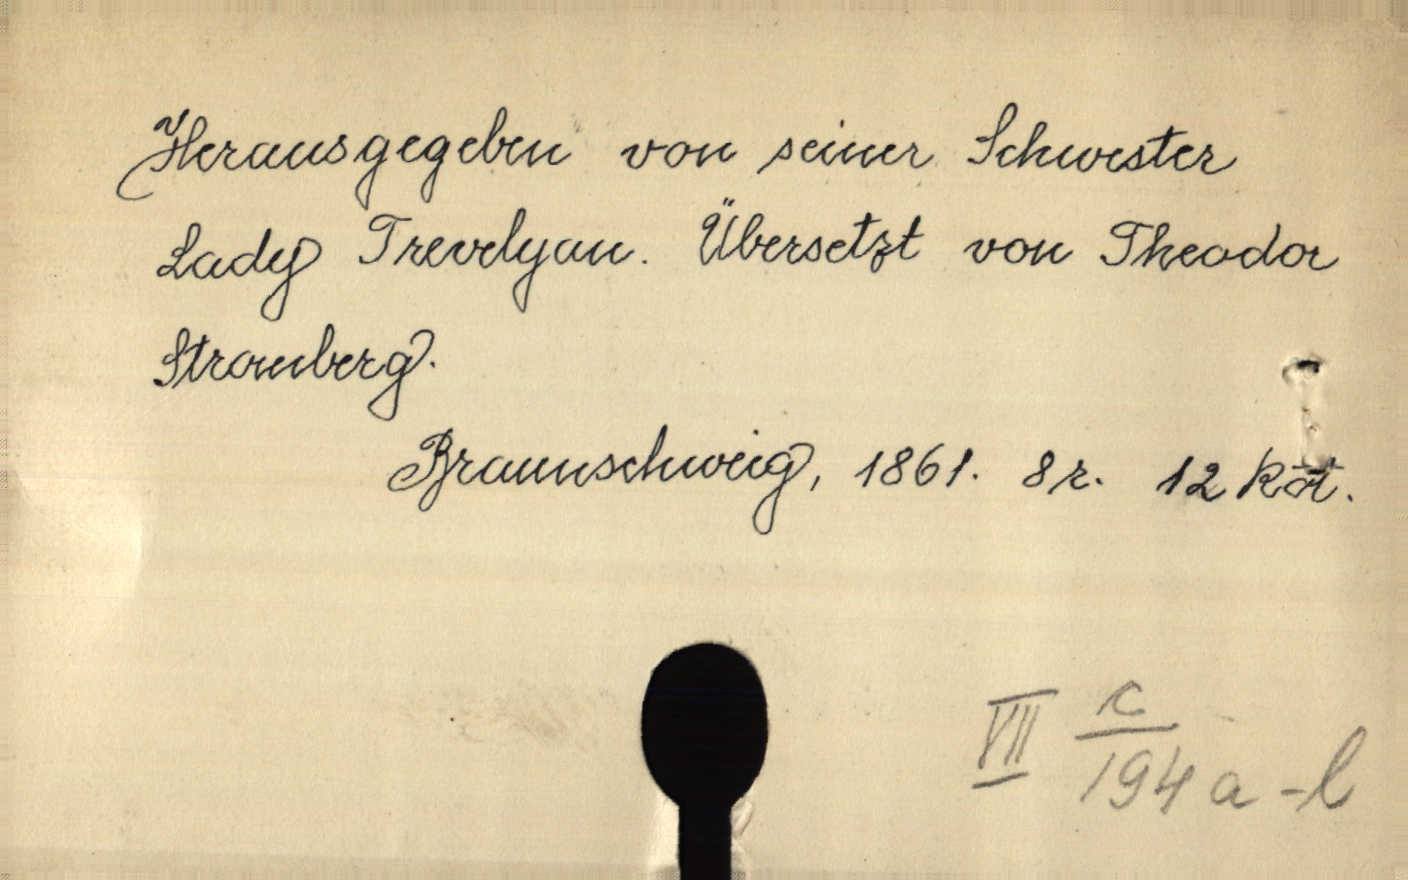 Herausgegeben von seiner Schwester
Lady Trevelyan. Übersetzt von Theodor
Stromberg.
Braunschweig, 1861. 8r. 12 köt.
VII c/194 a-l